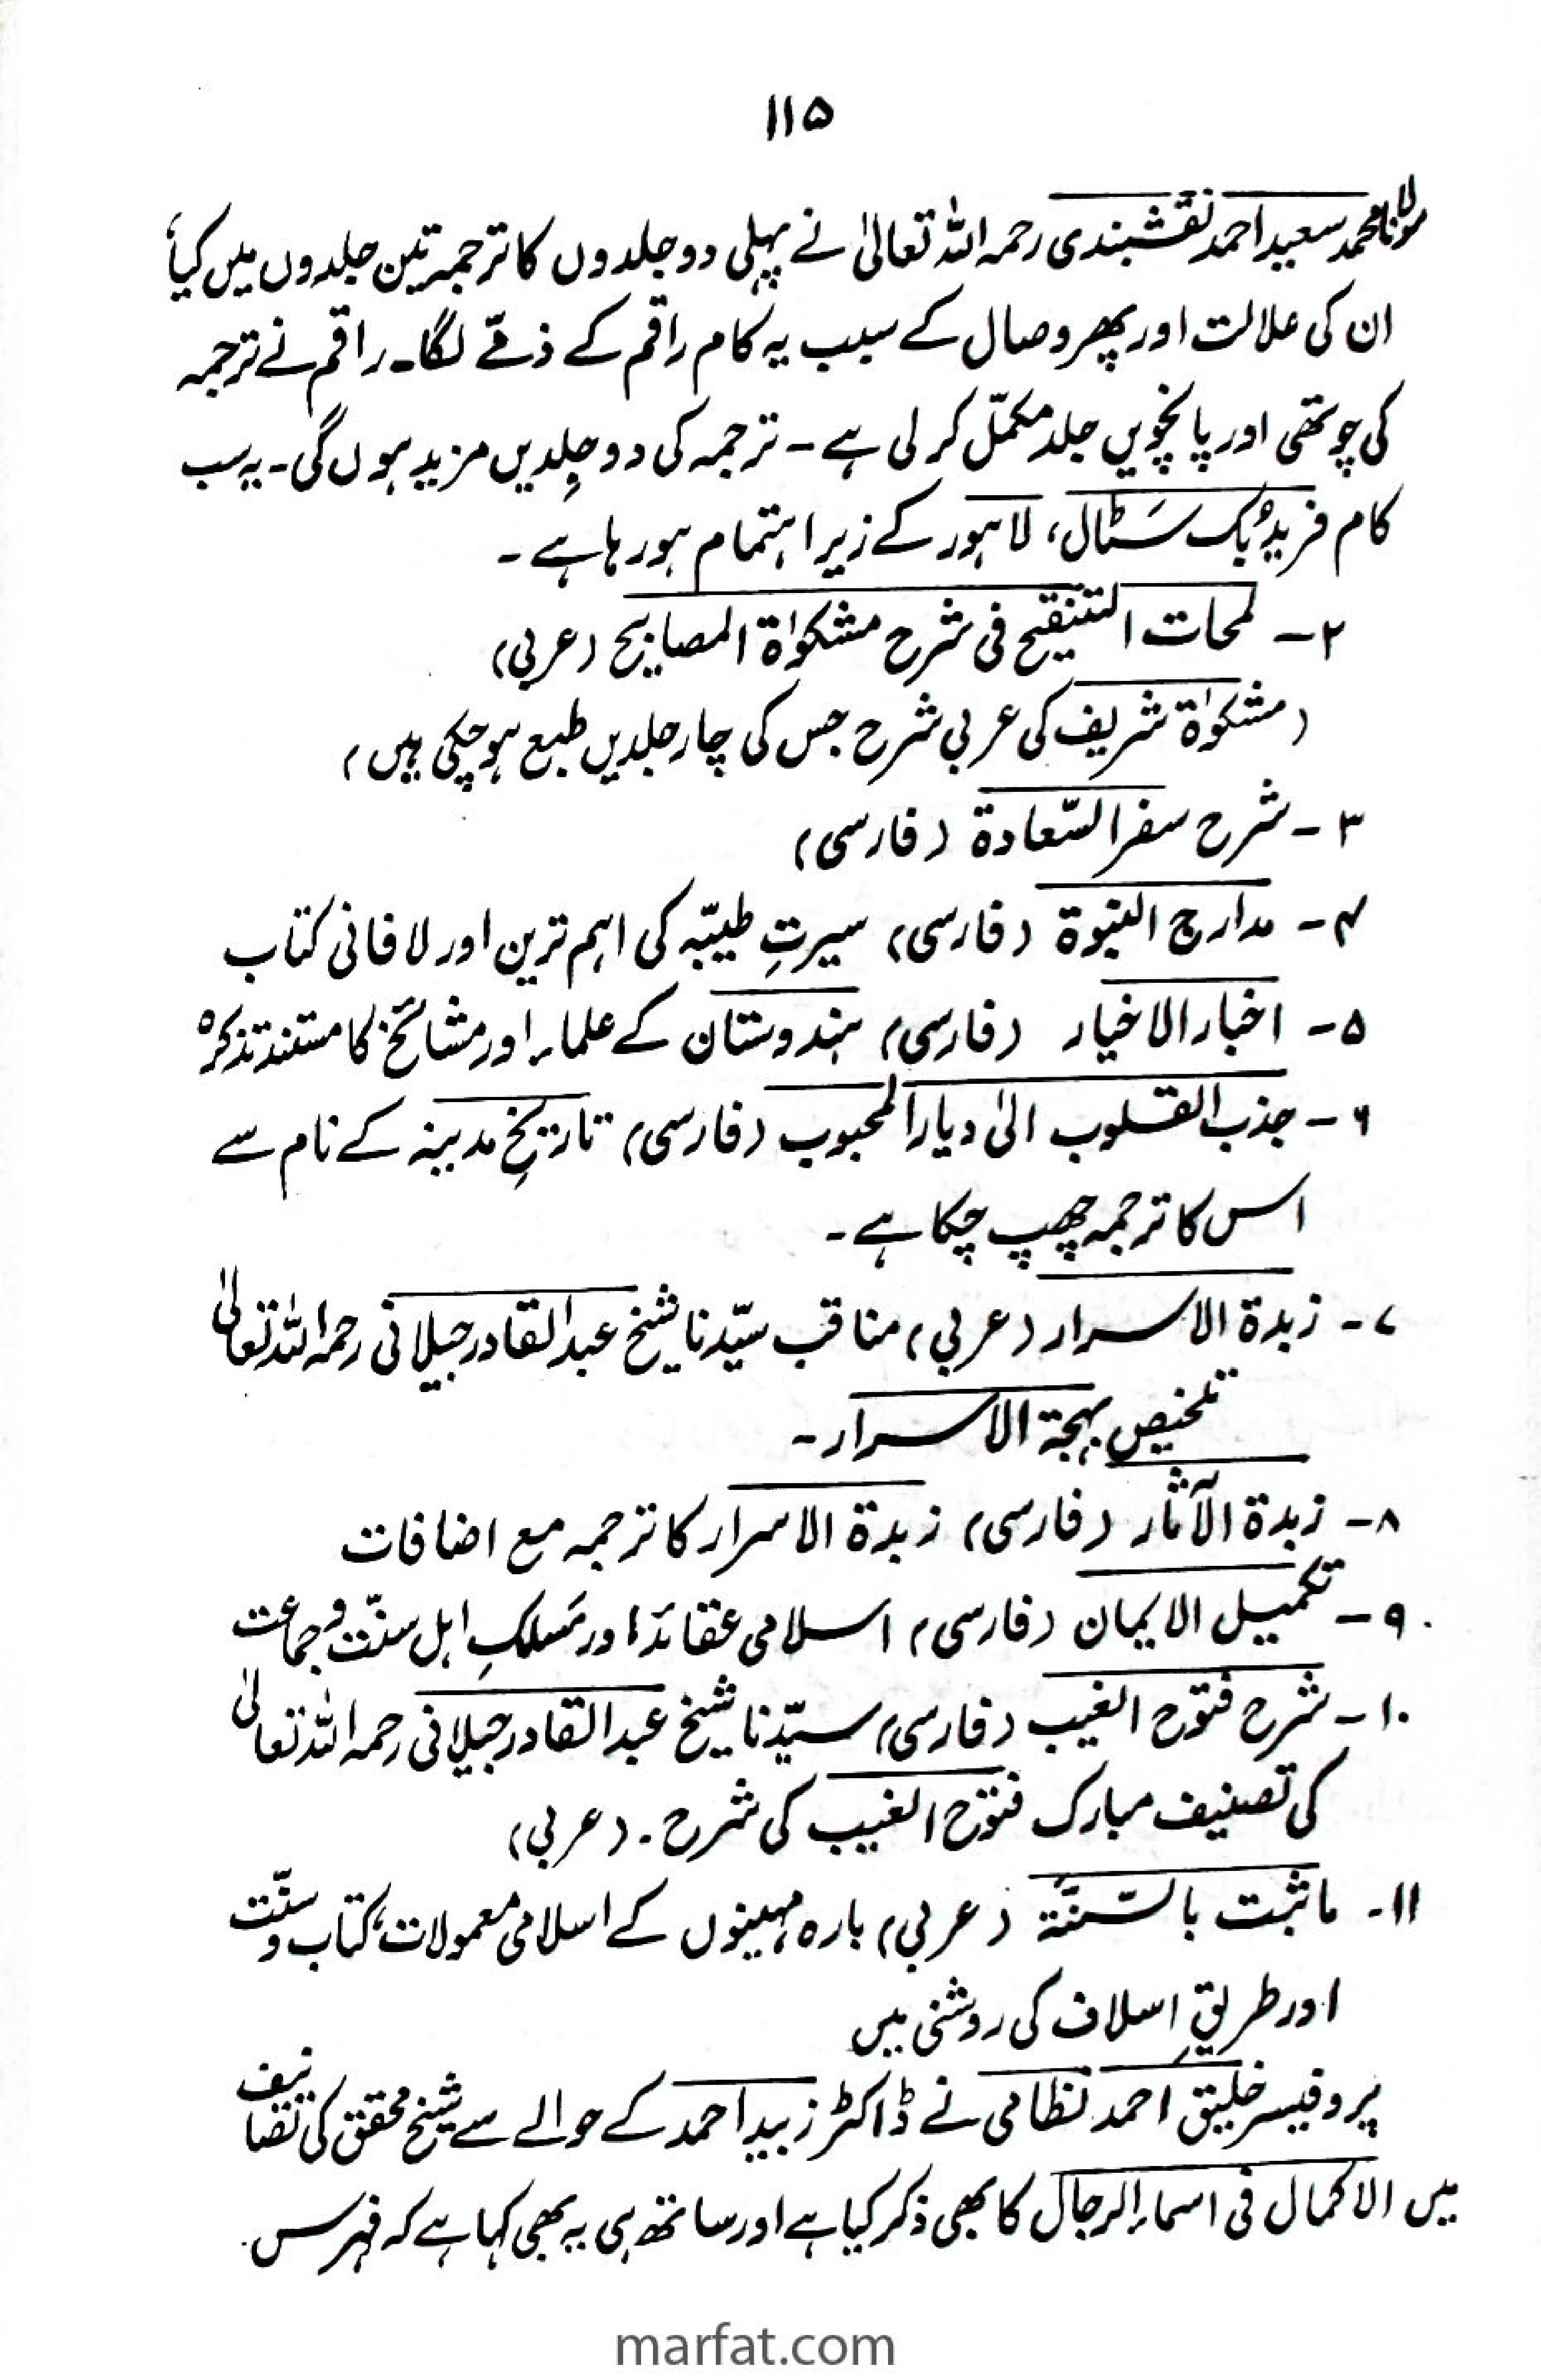 ۱۱۵
مولانا محمد سعید احمد نقشبندی رحمہ اللہ تعالیٰ نے پہلی دو جلدوں کا ترجمہ تین جلدوں میں کیا،
ان کی علالت اور پھر وصال کے سبب یہ کام راقم کے ذمّے لگا۔ راقم نے ترجمہ
کی چوتھی اور پانچویں جلد مکمّل کر لی ہے ۔ ترجمہ کی دو جِلدیں مزید ہوں گی۔ یہ سب
کام فرید بُک سَٹال، لاہور کے زیرِ اہتمام ہو رہا ہے ۔
۲ـ لمحات التنقیح فی شرح مشکوٰۃ المصابیح (عربی)
(مشکوٰۃ شریف کی عربی شرح جس کی چار جلدیں طبع ہو چکی ہیں)
۳ـ شرح سفر السّعادۃ (فارسی)
۴ـ مدارج النبوۃ (فارسی) سیرتِ طیبّہ کی اہم ترین اور لافانی کتاب
۵ـ اخبار الاخیار (فارسی) ہندوستان کے علماء اور مشائخ کا مستند تذکرہ
۶ـ جذب القلوب الیٰ دیار المحبوب (فارسی) تاریخِ مدینہ کے نام سے
اس کا ترجمہ چھپ چکا ہے ۔
۷ـ زبدۃ الاسرار (عربی) مناقب سیّدنا شیخ عبدالقادر جیلانی رحمہ اللہ تعالیٰ
تلخیص بہجۃ الاسرار ۔
۸ـ زبدۃ الآثار (فارسی) زبدۃ الاسرار کا ترجمہ مع اضافات
۹ـ تکمیل الایمان (فارسی) اسلامی عقائد اور مَسلکِ اہل سنّت و جماعت
۱۰ـ شرح فتوح الغیب (فارسی) سیّدنا شیخ عبدالقادر جیلانی رحمہ اللہ تعالیٰ
کی تصنیف مبارک فتوح الغیب کی شرح ۔ (عربی)
۱۱ـ ما ثبت بالسّنّۃ (عربی) بارہ مہینوں کے اسلامی معمولات، کتاب و سنّت
اور طریقِ اسلاف کی روشنی میں
پروفیسر خلیق احمد نظامی نے ڈاکٹر زبید احمد کے حوالے سے شیخ محقق کی تصانیف
میں الاکمال فی اسماء الرجال کا بھی ذکر کیا ہے اور ساتھ ہی یہ بھی کہا ہے کہ فہرس
marfat.com